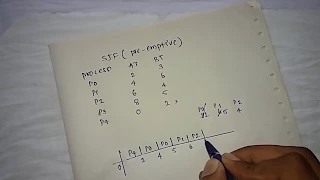 SJF ( pre-emptive)
PROCESS AT BT
P0 2 3
P1 4 6
P2 6 4
P3 8 5
P4 0 2
P0 P1 P2
4
P4 P0 P0 P1 P2
0 2 4 5 6